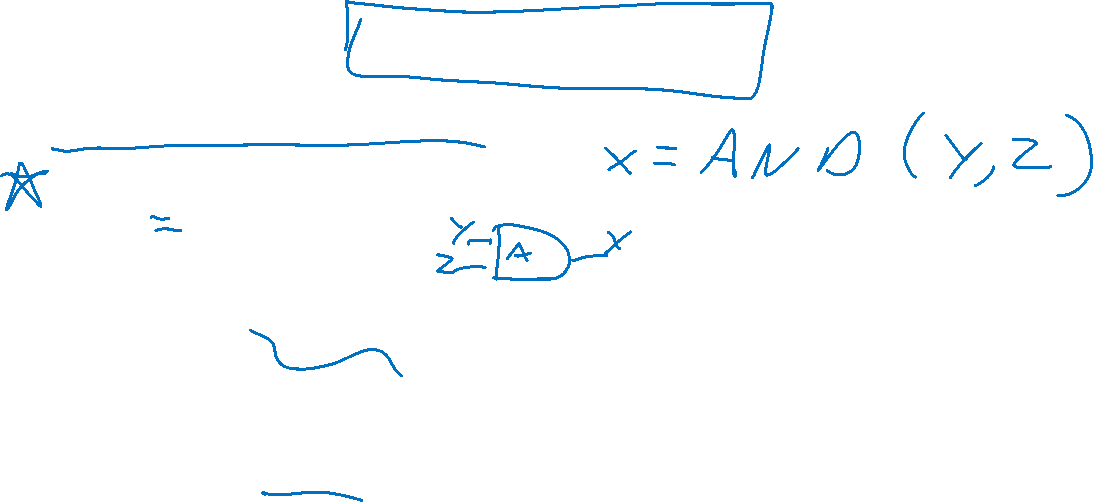 x = AND (Y, Z)
=
Y
A
X
Z